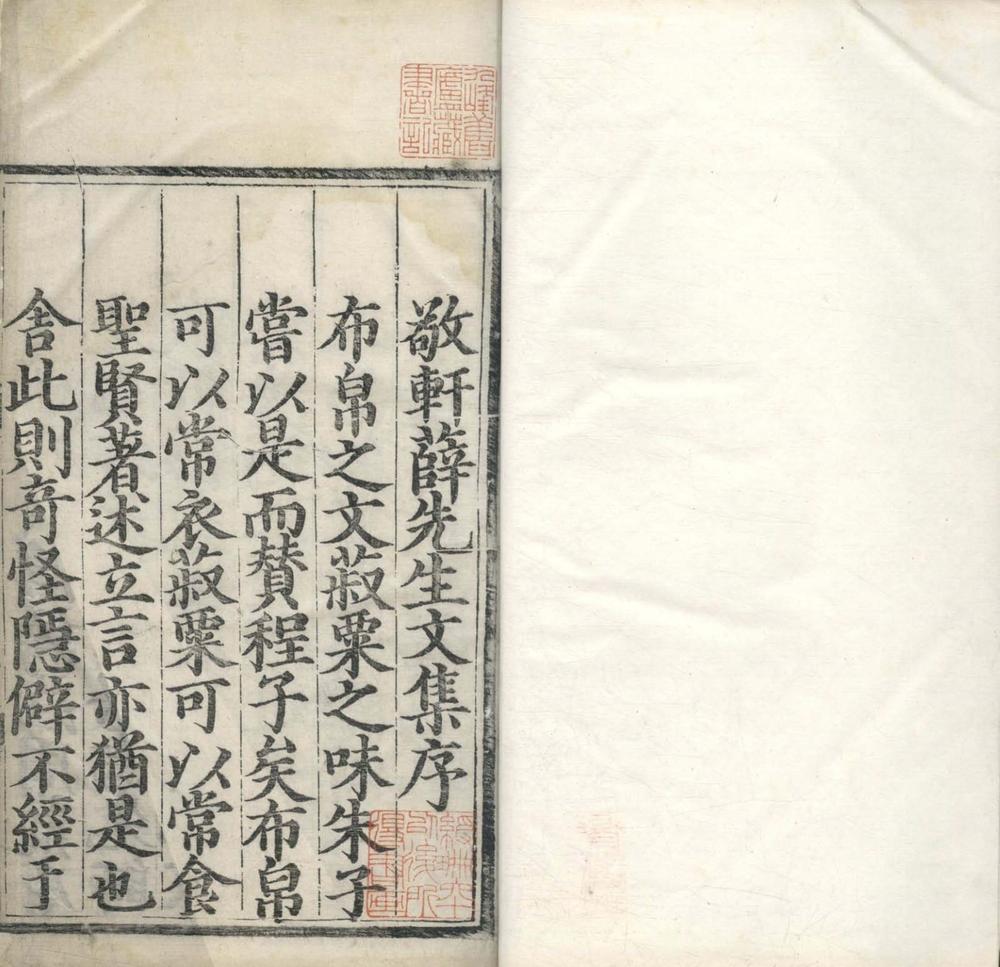 敬軒薛先生文集序
布帛之文菽粟之味朱子
嘗以是而賛程子矣布帛
可以常衣菽粟可以常食
聖賢著述立言亦猶是也
舍此則竒怪隱僻不經于